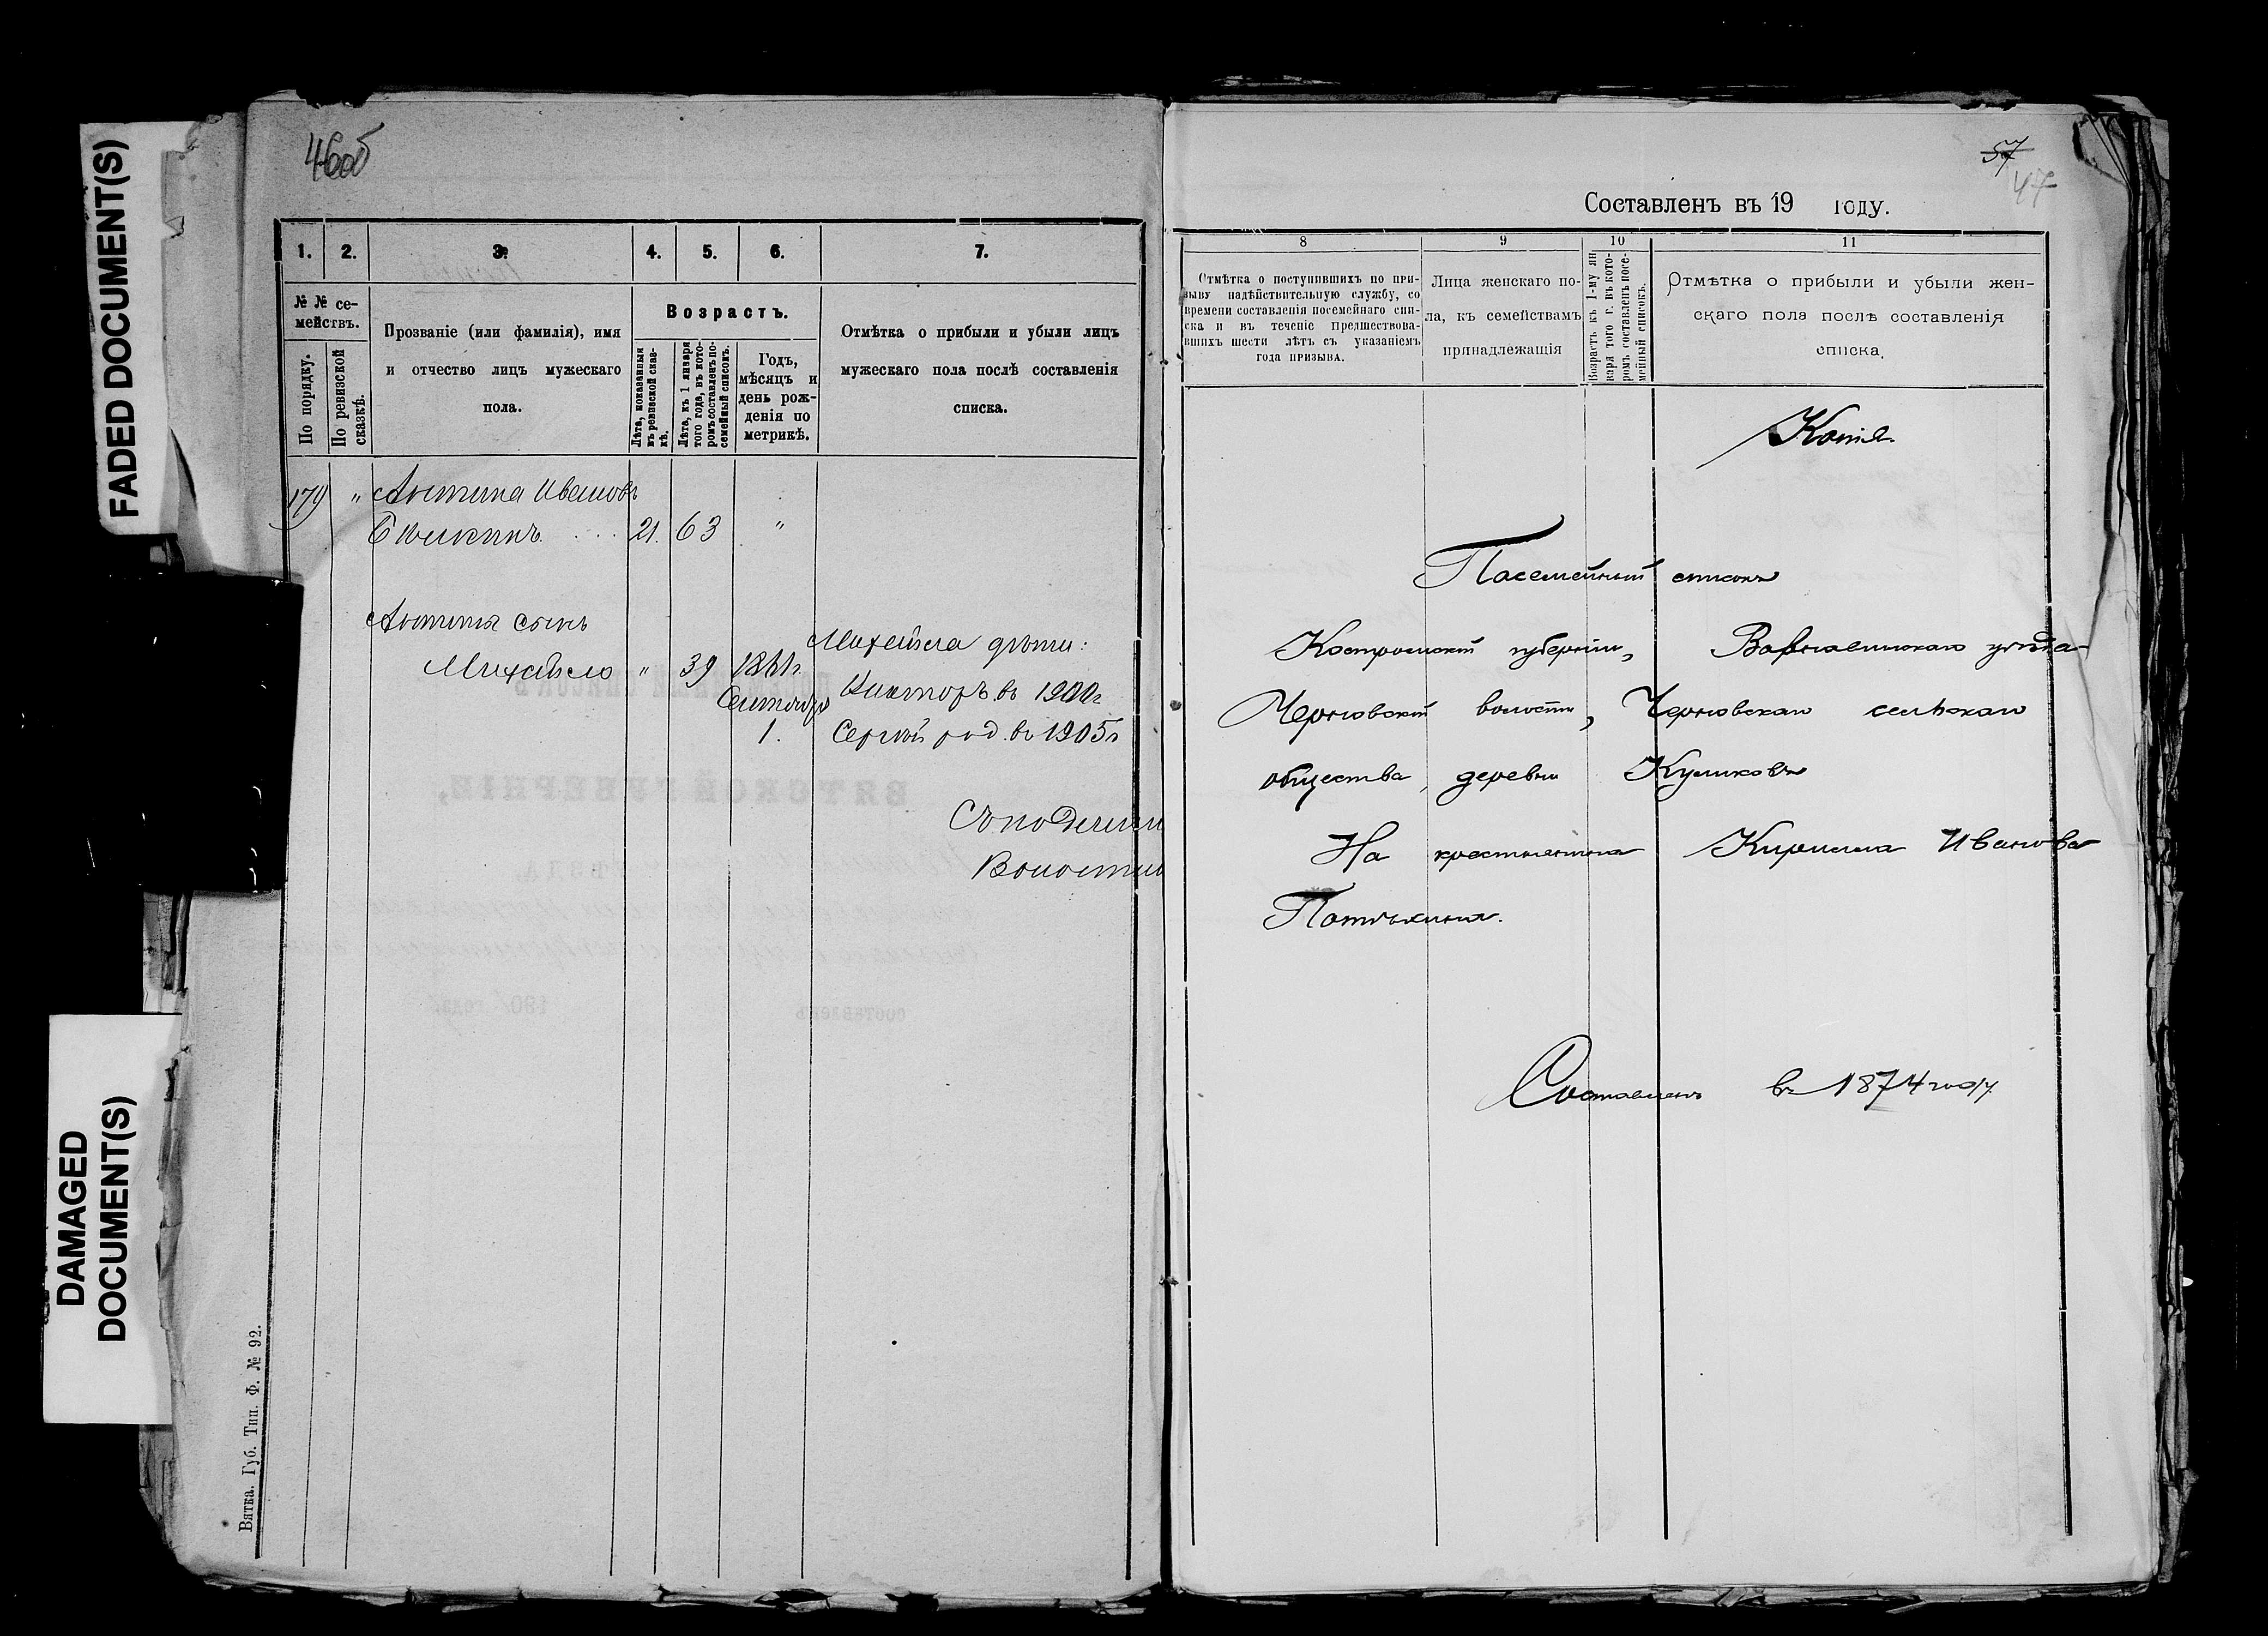 FADED DOCUMENT(S)
DAMAGED
DOCUMENT(S)
46об
1. 2. 3. 4. 5. 6. 7.
№ № се-
мействъ.
По порядку.
По ревизской
сказкѣ.
Прозваніе (или фамилія), имя
и отчество лицъ мужескаго
пола.
Возрастъ.
Лѣта, показанныя
въ ревизской сказ-
кѣ.
Лѣта, къ 1 января
того года, въ кото-
ромъ составленъ по-
семейный списокъ.
Годъ,
мѣсяцъ и
день рож-
денія по
метрикѣ.
Отмѣтка о прибыли и убыли лицъ
мужескаго пола послѣ составленія
списка.
179 " Антипа Ивановъ
21. 63 "
Антипы сынъ
Михайло " 39
Сентября
1.
Михайла дѣти:
Викторъ въ 1900г
Сергѣй род. въ 1905г
Вятка. Губ. Тип. Ф. № 92.
57
47
Составленъ въ 19 году.
8 9 10 11
Отмѣтка о поступившихъ по при-
зыву надѣйствительную службу, со
времени составленія посемейнаго спи-
ска и въ теченіе предшествова-
вшихъ шести лѣтъ съ указаніемъ
года призыва.
Лица женскаго по-
ла, къ семействамъ
принадлежащія
Возрастъ къ 1-му ян
варя того г. въ кото-
ромъ составленъ посе-
мейный списокъ.
Отмѣтка о прибыли и убыли жен-
скаго пола послѣ составленія
списка.
Копія
Посемейный списокъ
Костромской губерніи, Варнавинскаго уѣзда
Черновской волости, Черновскаго сельскаго
общества, деревни Куликова
На крестьянина Кирилла Иванова
Потѣхина.
Составленъ въ 1874 году.